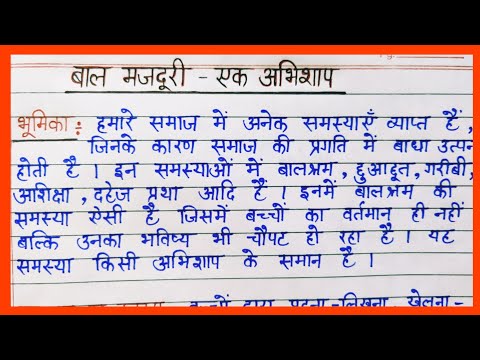 बाल मजदूरी - एक अभिशाप
भूमिका : हमारे समाज में अनेक समस्याएँ व्याप्त हैं,
जिनके कारण समाज की प्रगति में बाधा उत्पन
होती है । इन समस्याओं में बालश्रम, छुआछूत, गरीबी,
अशिक्षा, दहेज प्रथा आदि है । इनमें बालश्रम की
समस्या ऐसी है जिसमें बच्चों का वर्तमान ही नहीं
बल्कि उनका भविष्य भी चौपट हो रहा है । यह
समस्या किसी अभिशाप के समान है ।
पढ़ना-लिखना, खेलना-